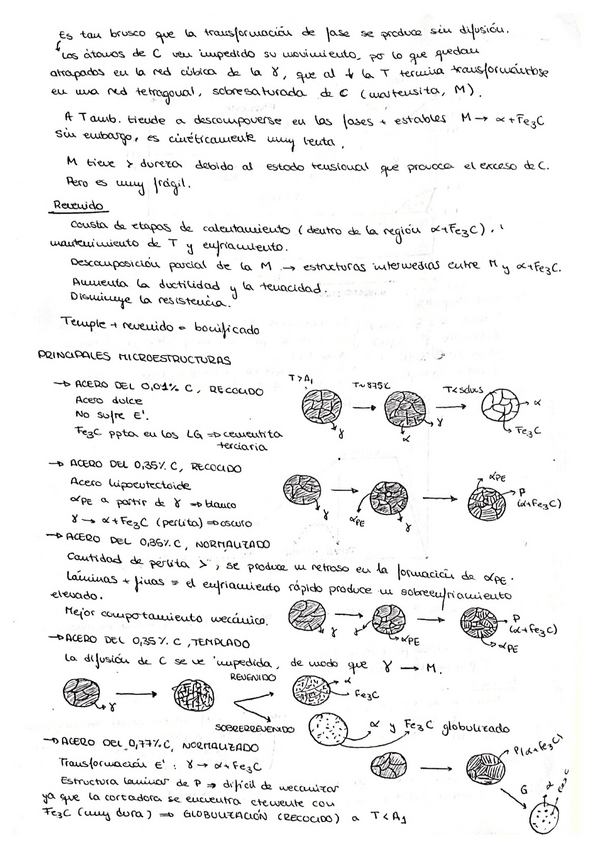 Es tan brusco que la transformación de fase se produce sin difusión.
Los átomos de C ven impedido su movimiento, por lo que quedan
atrapados en la red cúbica de la γ, que al ↓ la T termina transformándose
en una red tetragonal, sobresaturada de C (martensita, M).
A Tamb. tiende a descomponerse en las fases + estables M → α+Fe3C
Sin embargo, es cinéticamente muy lenta.
M tiene > dureza debido al estado tensional que provoca el exceso de C.
Pero es muy frágil.
Revenido
Consta de etapas de calentamiento (dentro de la región α+Fe3C),
mantenimiento de T y enfriamiento.
Descomposición parcial de la M → estructuras intermedias entre M y α+Fe3C.
Aumenta la ductilidad y la tenacidad.
Disminuye la resistencia.
Temple + revenido = bonificado
PRINCIPALES MICROESTRUCTURAS
→ ACERO DEL 0,01% C, RECOCIDO
T>A1
T~875C
T<solvus
Acero dulce
No sufre E'.
Fe3C ppta en los LG ⇒ cementita
terciaria
γ
α
γ
α
Fe3C
→ ACERO DEL 0,35% C, RECOCIDO
Acero hipoeutectoide
αPE a partir de γ ⇒ blanco
γ → α+Fe3C (perlita) ⇒ oscuro
γ
αPE
γ
αPE
P
(α+Fe3C)
→ ACERO DEL 0,35% C, NORMALIZADO
Cantidad de perlita >, se produce un retraso en la formación de αPE.
Láminas + finas = el enfriamiento rápido produce un sobreenfriamiento
elevado.
Mejor comportamiento mecánico.
γ
γ
αPE
P
(α+Fe3C)
αPE
→ ACERO DEL 0,35% C, TEMPLADO
La difusión de C se ve impedida, de modo que γ → M.
γ
REVENIDO
α
Fe3C
SOBRERREVENIDO
α y Fe3C globulizado
→ ACERO DEL 0,77% C, NORMALIZADO
Transformación E': γ → α+Fe3C
Estructura laminar de P ⇒ difícil de mecanizar
ya que la cortadora se encuentra ctemente con
Fe3C (muy dura) ⇒ GLOBULIZACIÓN (RECOCIDO) a T<A1
P(α+Fe3C)
G
α
Fe3C